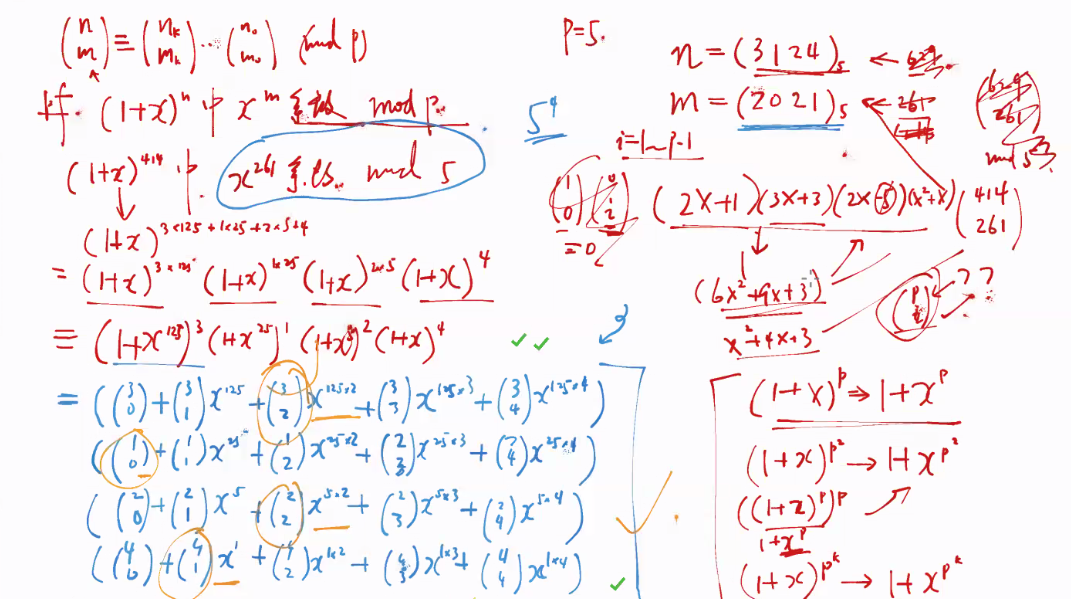 (n m) ≡ (n_k m_k) ... (n_0 m_0) (mod p)
pf. (1+x)^n 中 x^m 系数 mod p.
(1+x)^414 中 x^261 系数. mod 5
(1+x)^{3×125+1×25+2×5+4}
= (1+x)^{3×125} (1+x)^{1×25} (1+x)^{2×5} (1+x)^4
≡ (1+x^125)^3 (1+x^25)^1 (1+x^5)^2 (1+x)^4
= ((3 0)+(3 1)x^125+(3 2)x^{125×2}+(3 3)x^{125×3}+(3 4)x^{125×4})
((1 0)+(1 1)x^25+(1 2)x^{25×2}+(2 3)x^{25×3}+(2 4)x^{25×4})
((2 0)+(2 1)x^5+(2 2)x^{5×2}+(2 3)x^{5×3}+(2 4)x^{5×4})
((4 0)+(4 1)x^1+(4 2)x^{1×2}+(4 3)x^{1×3}+(4 4)x^{1×4})
p=5.
5^4
n=(3124)_5 ←
m=(2021)_5 ← 261
(629 261)
mod 5
i=1~p-1
(1 0)
=0
(2x+1)(3x+3)(2x-5)(x^2+x)
(414 261)
(6x^2+9x+3)
x^2+4x+3
(p i) ??
(1+x)^p ⇒ 1+x^p
(1+x)^{p^2} → 1+x^{p^2}
((1+x)^p)^p
1+x^p
(1+x)^{p^k} → 1+x^{p^k}